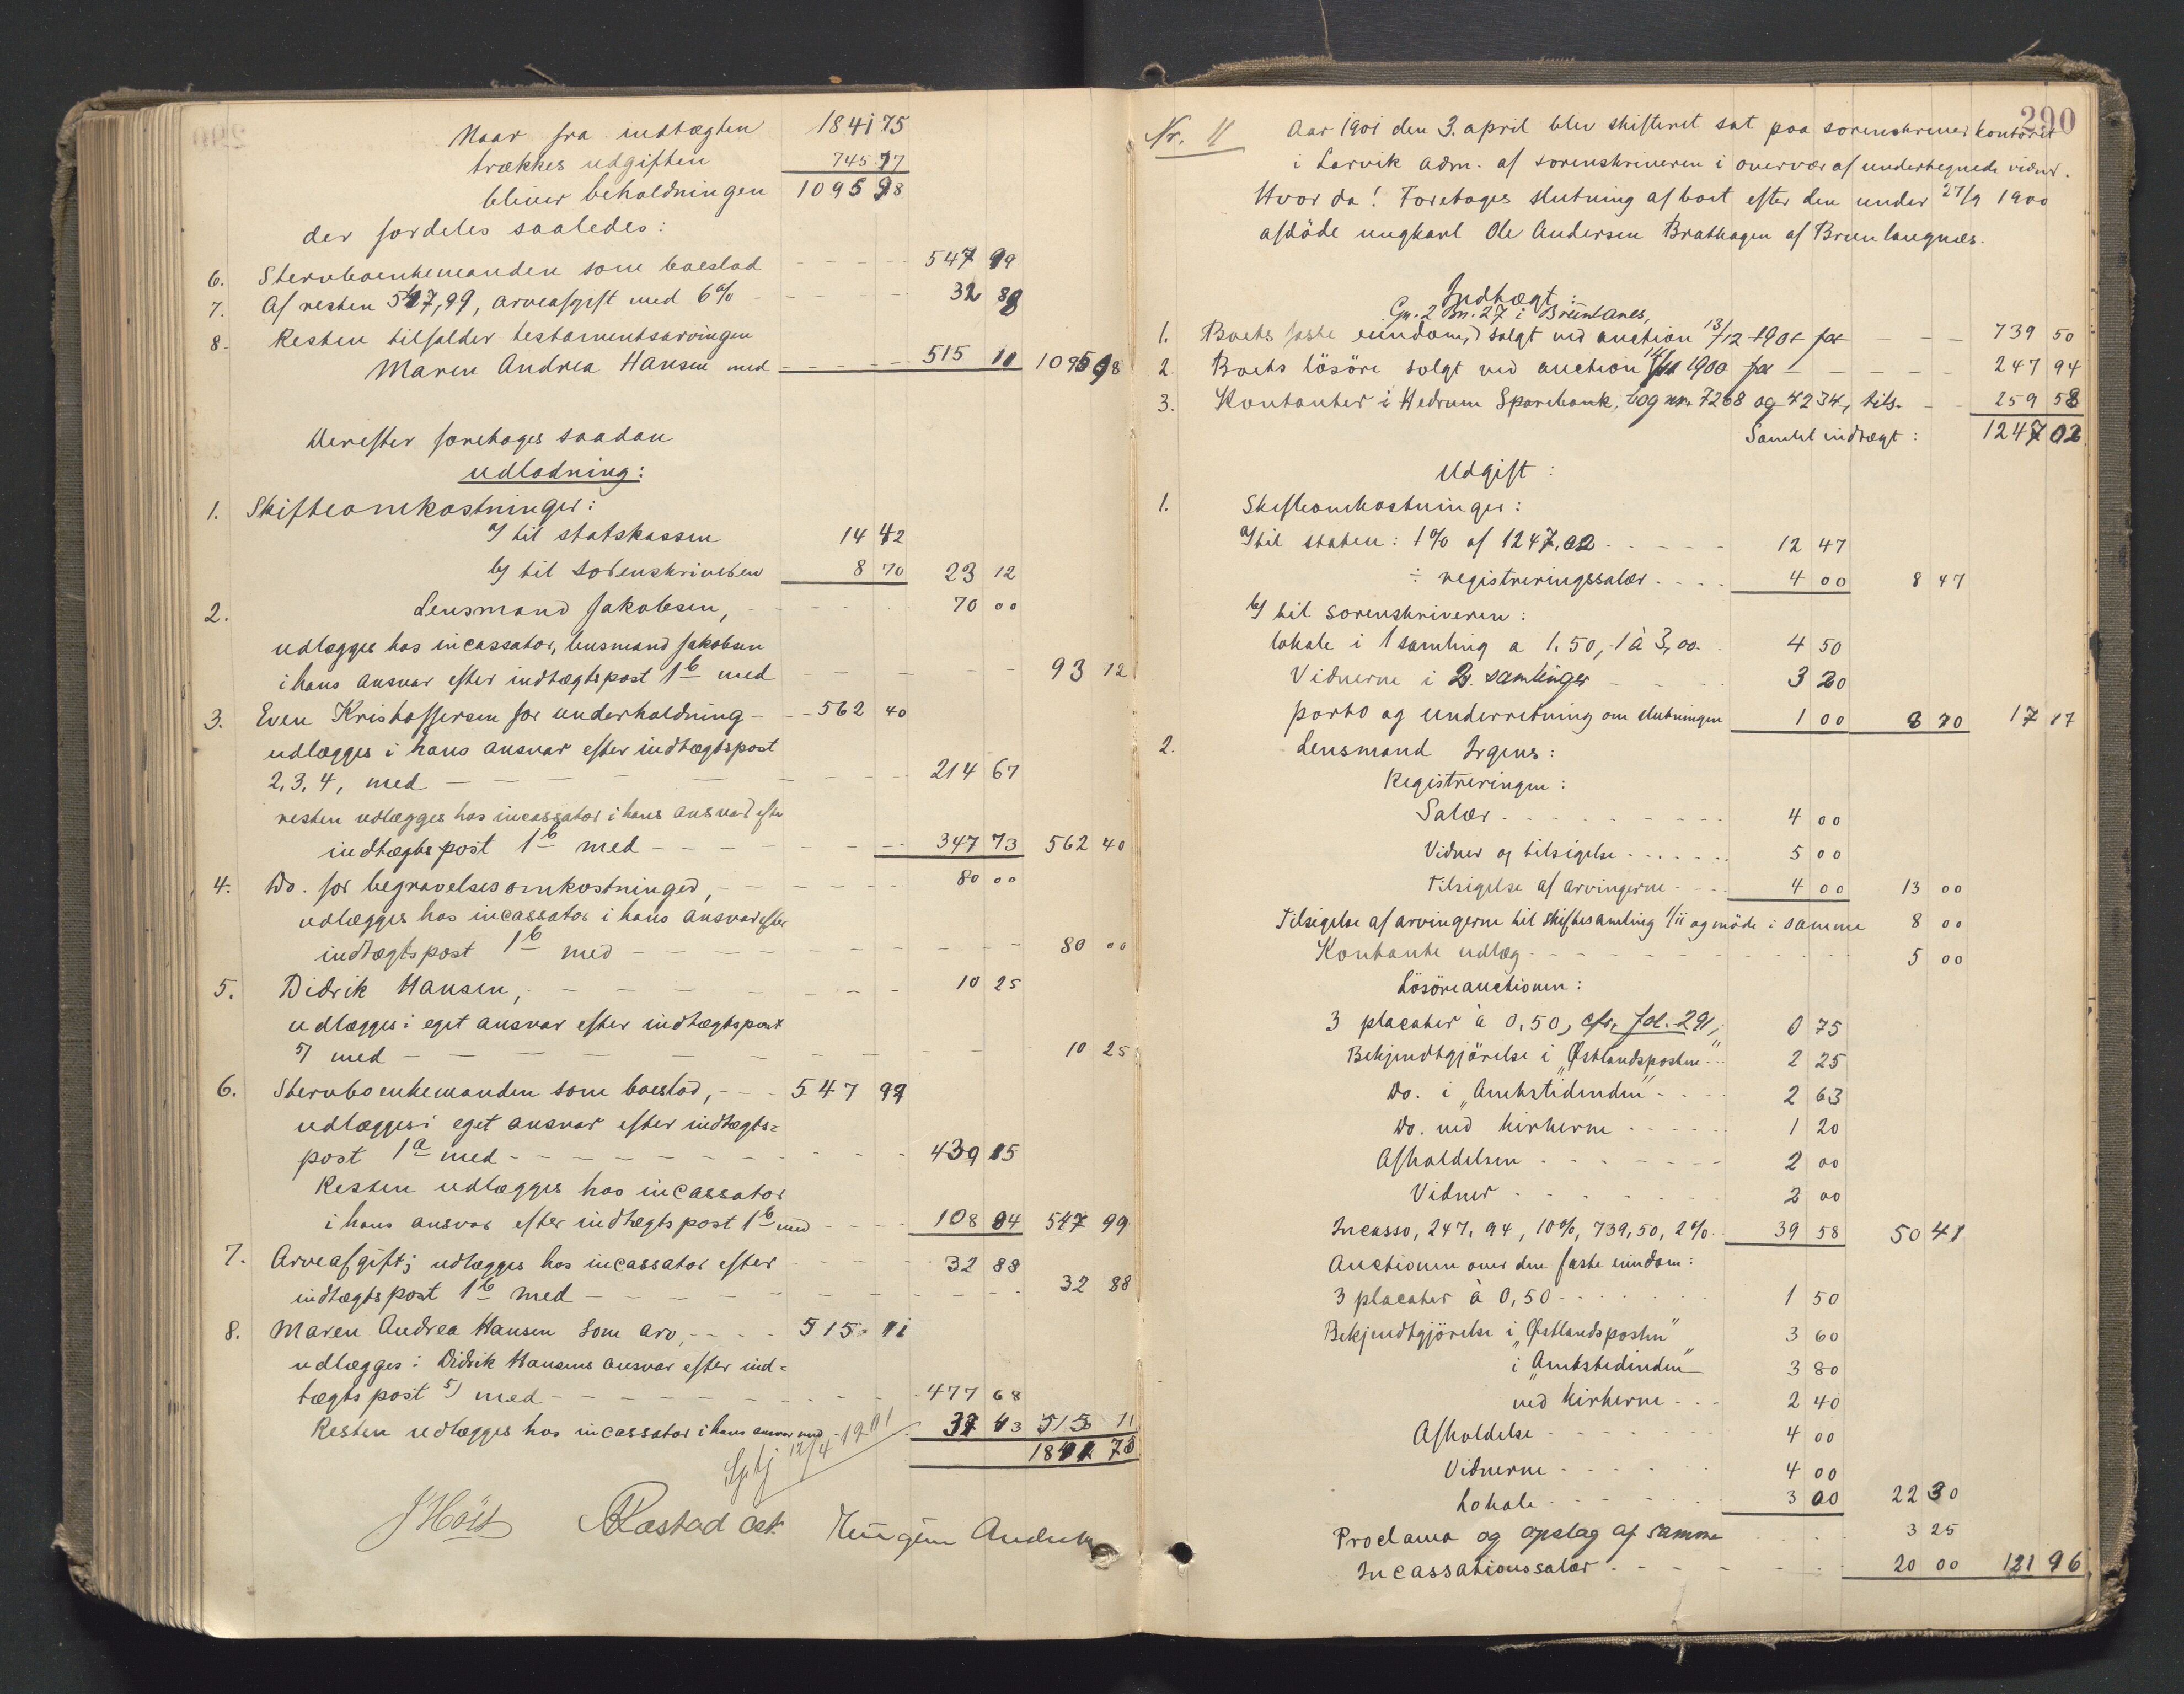 Naar fra indtægten 1841 75
trækkes udgiften 745 77
bliver beholdningen 1095 98
der fordeles saaledes:
6. Stervboenkemanden som boeslod - - - - 547 99
7. Af resten 547,99, arveafgift med 6% - - - - 32 88
8. Resten tilfalder testamentsarvingen
Maren Andrea Hansen med - - - - 515 11 1095 98
Derefter foretages saadan
udlodning:
1. Skifteomkostninger:
a/ til statskassen 14 42
b/ til sorenskriveren 8 70 23 12
2. Lensmand Jakobsen, - - - - 70 00
udlægges hos incassator, lensmand Jakobsen
i hans ansvar efter indtægtspost 1b med - - - - 93 12
3. Even Kristoffersen for underholdning - - - 562 40
udlægges i hans ansvar efter indtægtspost
2, 3, 4, med - - - - 214 67
resten udlægges hos incassator i hans ansvar efter
indtægtspost 1b med - - - - 347 73 562 40
4. Do. for begravelsesomkostninger, - - - - 80 00
udlægges hos incassator i hans ansvar efter
indtægtspost 1b med - - - - 80 00
5. Didrik Hansen, - - - - 10 25
udlægges i eget ansvar efter indtægtspost
5) med - - - - 10 25
6. Stervboenkemanden som boeslod, - - - 547 99
udlægges i eget ansvar efter indtægts=
post 1a med - - - - 439 15
Resten udlægges hos incassator
i hans ansvar efter indtægtspost 1b med - - - - 108 84 547 99
7. Arveafgift; udlægges hos incassator efter - - - - 32 88
indtægtspost 1b med - - - - 32 88
8. Maren Andrea Hansen som arv, - - - - 515 11
udlægges i Didrik Hansens ansvar efter ind=
tægtspost 5) med - - - - 477 68
Resten udlægges hos incassator i hans ansvar med - 37 43 515 11
1841 75
12/4 - 1901
J Höst Rastad ast. Jürgen Anders
290
Nr. 11 Aar 1901 den 3. april blev skifteret sat paa sorenskriverkontoret
i Larvik adm. af sorenskriveren i overvær af undertegnede vidner.
Hvor da! Foretages slutning af boet efter den under 27/9 1900
afdöde ungkarl Ole Andersen Brathagen af Brunlangnæs.
Indtægt:
Gn. 2 Bn. 27 i Bruntanes,
1. Boets faste eiendom, solgt ved auction 13/12 1901 for - - - 739 50
2. Boets lösöre solgt ved auction 14/11 1900 for - - - - 247 94
3. Kontanter i Hedrum Sparebank, bog nr. 7268 og 4234, tils. - - 259 58
Samlet indtægt: 1247 02
Udgift:
1. Skifteomkostninger:
a/ til staten: 1% af 1247,02 - - - - 12 47
÷ registreringssalær - - - - 4 00 8 47
b/ til sorenskriveren:
lokale i 1 samling a 1,50, 1 à 3,00 - 4 50
Vidnerne i 2 samlinger - - - - 3 20
porto og underretning om slutningen 1 00 8 70 17 17
2. Lensmand Irgens:
Registreringen:
Salær - - - - 4 00
Vidner og tilsigelse - - - - 5 00
Tilsigelse af arvingerne - - - - 4 00 13 00
Tilsigelse af arvingerne til skiftesamling 1/11 og möde i samme 8 00
Kontante udlæg - - - - 5 00
Lösöreauctionen:
3 placater à 0,50, cfr. fol. 291, 0 75
Bekjendtgjörelse i "Østlandsposten" - - 2 25
Do. i "Amtstidenden" - - - - 2 63
Do. ved kirkerne - - - - 1 20
Afholdelsen - - - - 2 00
Vidner - - - - 2 00
Incasso, 247,94, 10%, 739,50, 2% - - 39 58 50 41
Auctionen over den faste eiendom:
3 placater à 0,50 - - - - 1 50
Bekjendtgjörelse i "Østlandsposten" 3 60
i "Amtstidenden" 3 80
ved kirkerne - - - 2 40
Afholdelse - - - - 4 00
Vidnerne - - - - 4 00
Lokale - - - - 3 00 22 30
Proclama og opslag af samme - - 3 25
Incassationssalær - - - - 20 00 121 96